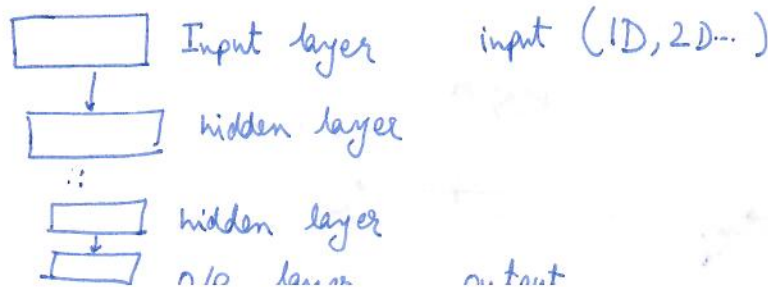 Input layer input (1D, 2D... )
hidden layer
hidden layer
O/P layer output